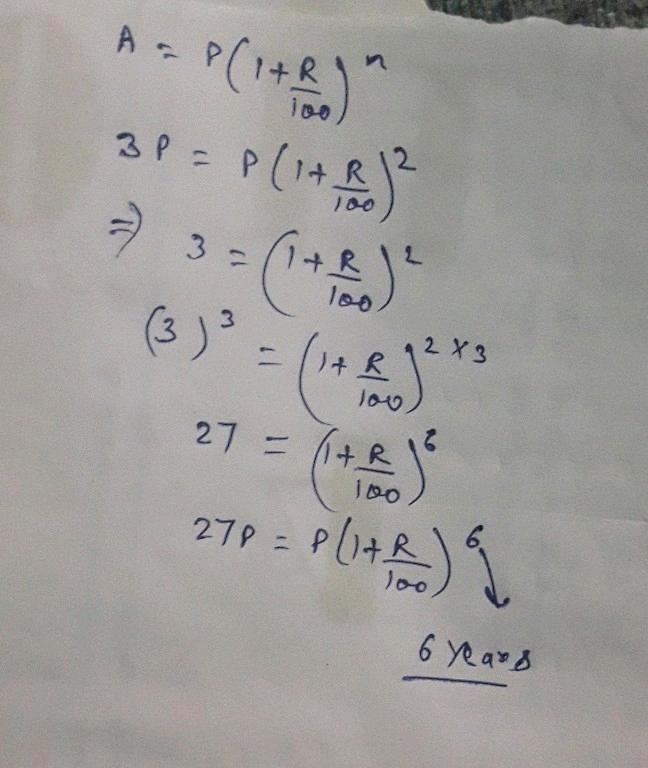 A = P(1+R/100)^n
3P = P(1+R/100)^2
⇒ 3 = (1+R/100)^2
(3)^3 = (1+R/100)^2×3
27 = (1+R/100)^6
27P = P(1+R/100)^6
6 Years